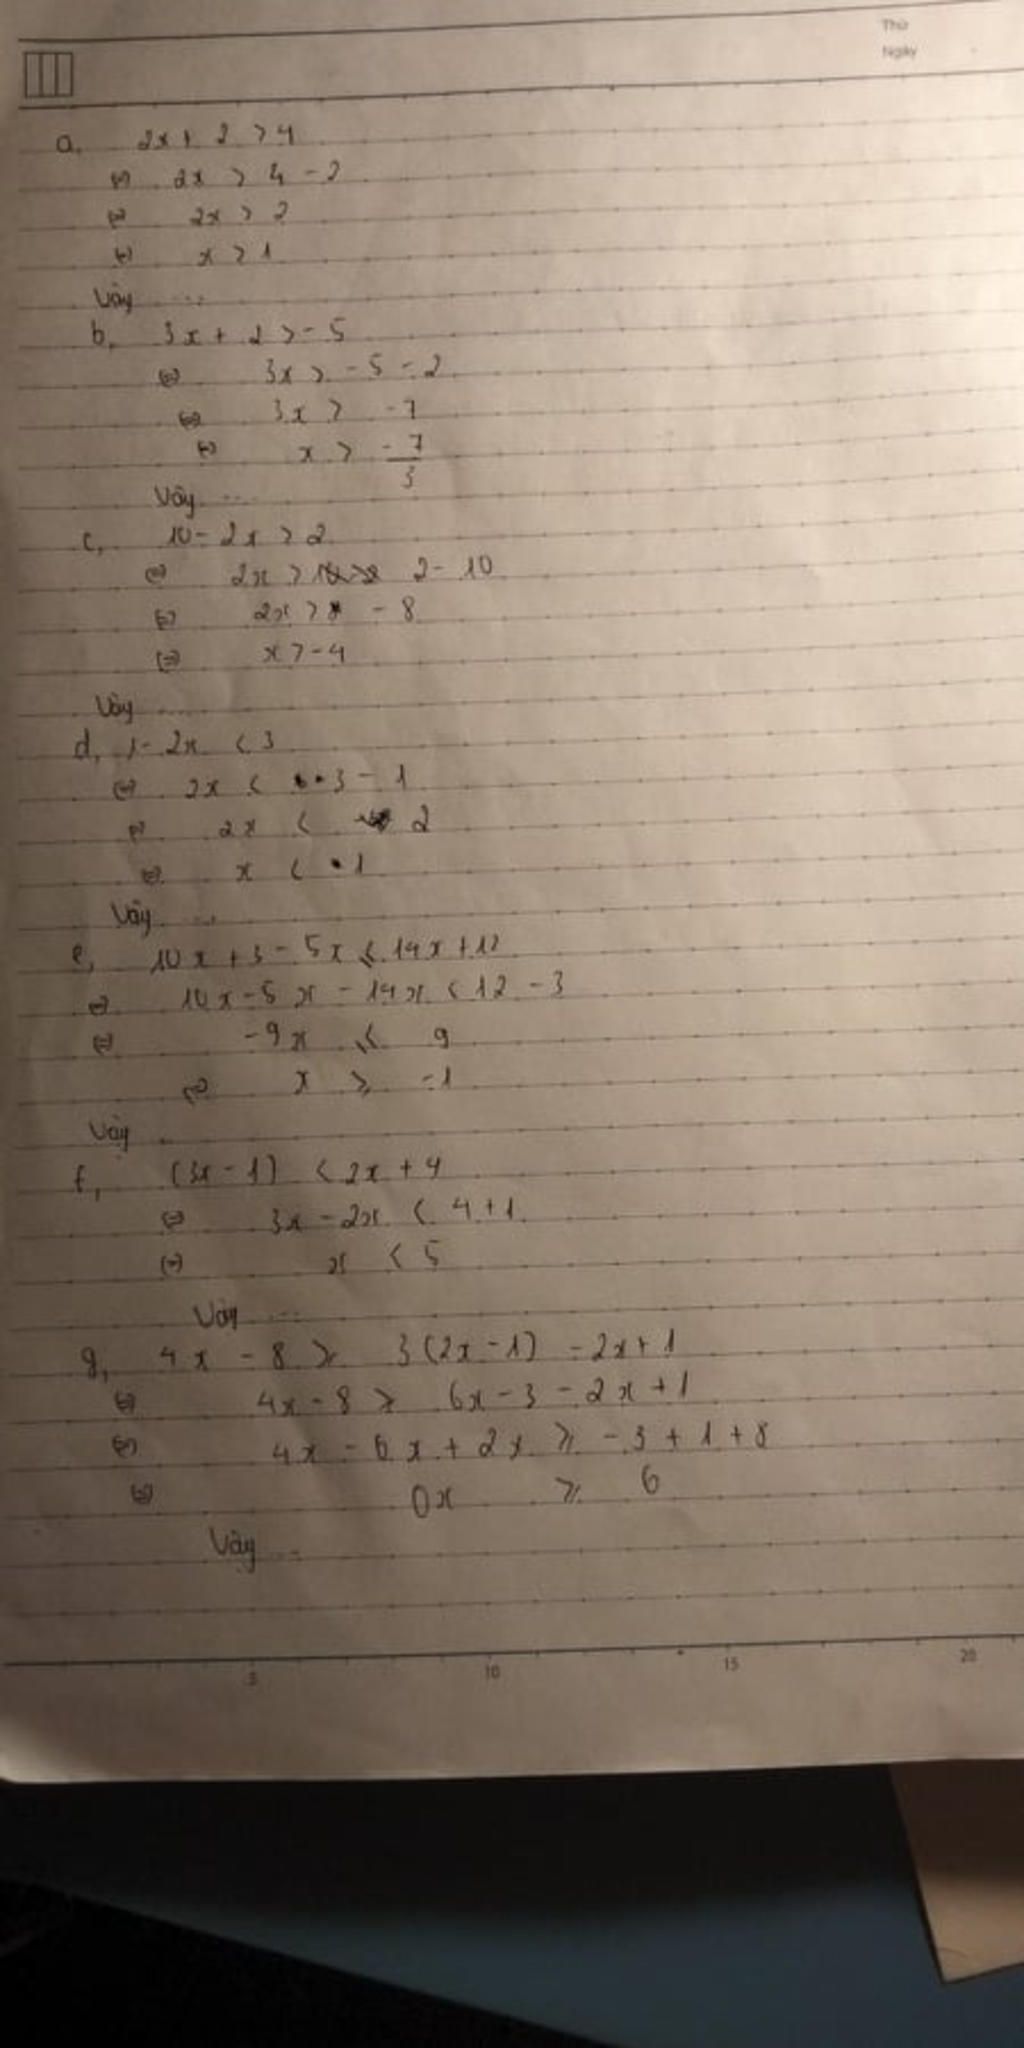 Thứ
Ngày
a, 2x + 2 > 4
⇔ 2x > 4 - 2
⇔ 2x > 2
⇔ x > 1
Vậy ...
b, 3x + 2 > -5
⇔ 3x > -5 - 2
⇔ 3x > -7
⇔ x > -7/3
Vậy ...
c, 10 - 2x > 2
⇔ 2x > 2 - 10
⇔ 2x > - 8
⇔ x > -4
Vậy ...
d, 1 - 2x < 3
⇔ 2x < 3 - 1
⇔ 2x < 2
⇔ x < 1
Vậy ...
e, 10x + 3 - 5x ≤ 14x + 12
⇔ 10x - 5x - 14x < 12 - 3
⇔ -9x ≤ 9
⇔ x ≥ -1
Vậy ...
f, (3x - 1) < 2x + 4
⇔ 3x - 2x < 4 + 1
⇔ x < 5
Vậy ...
g, 4x - 8 ≥ 3(2x - 1) - 2x + 1
⇔ 4x - 8 ≥ 6x - 3 - 2x + 1
⇔ 4x - 6x + 2x ≥ -3 + 1 + 8
⇔ 0x ≥ 6
Vậy ...
5 10 15 20